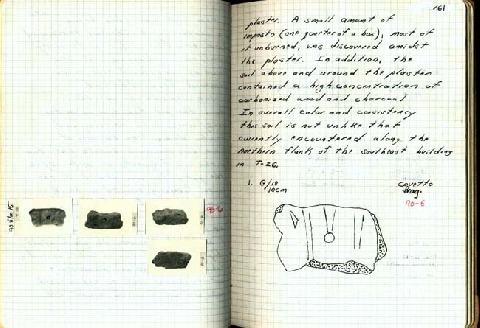 161
plaster. A small amount of
imposto (one quarter of a box), most of
it unburned, was discovered amidst
the plaster. In addition, the
soil above and around the plaster
contained a high concentration of
carbonized wood and charcoal.
In overall color and consistency
this soil is not unlike that
currently encountered along the
northern flank of the southeast building
in T-26.
1. G/10
10cm
cavetto
90-6
90-6